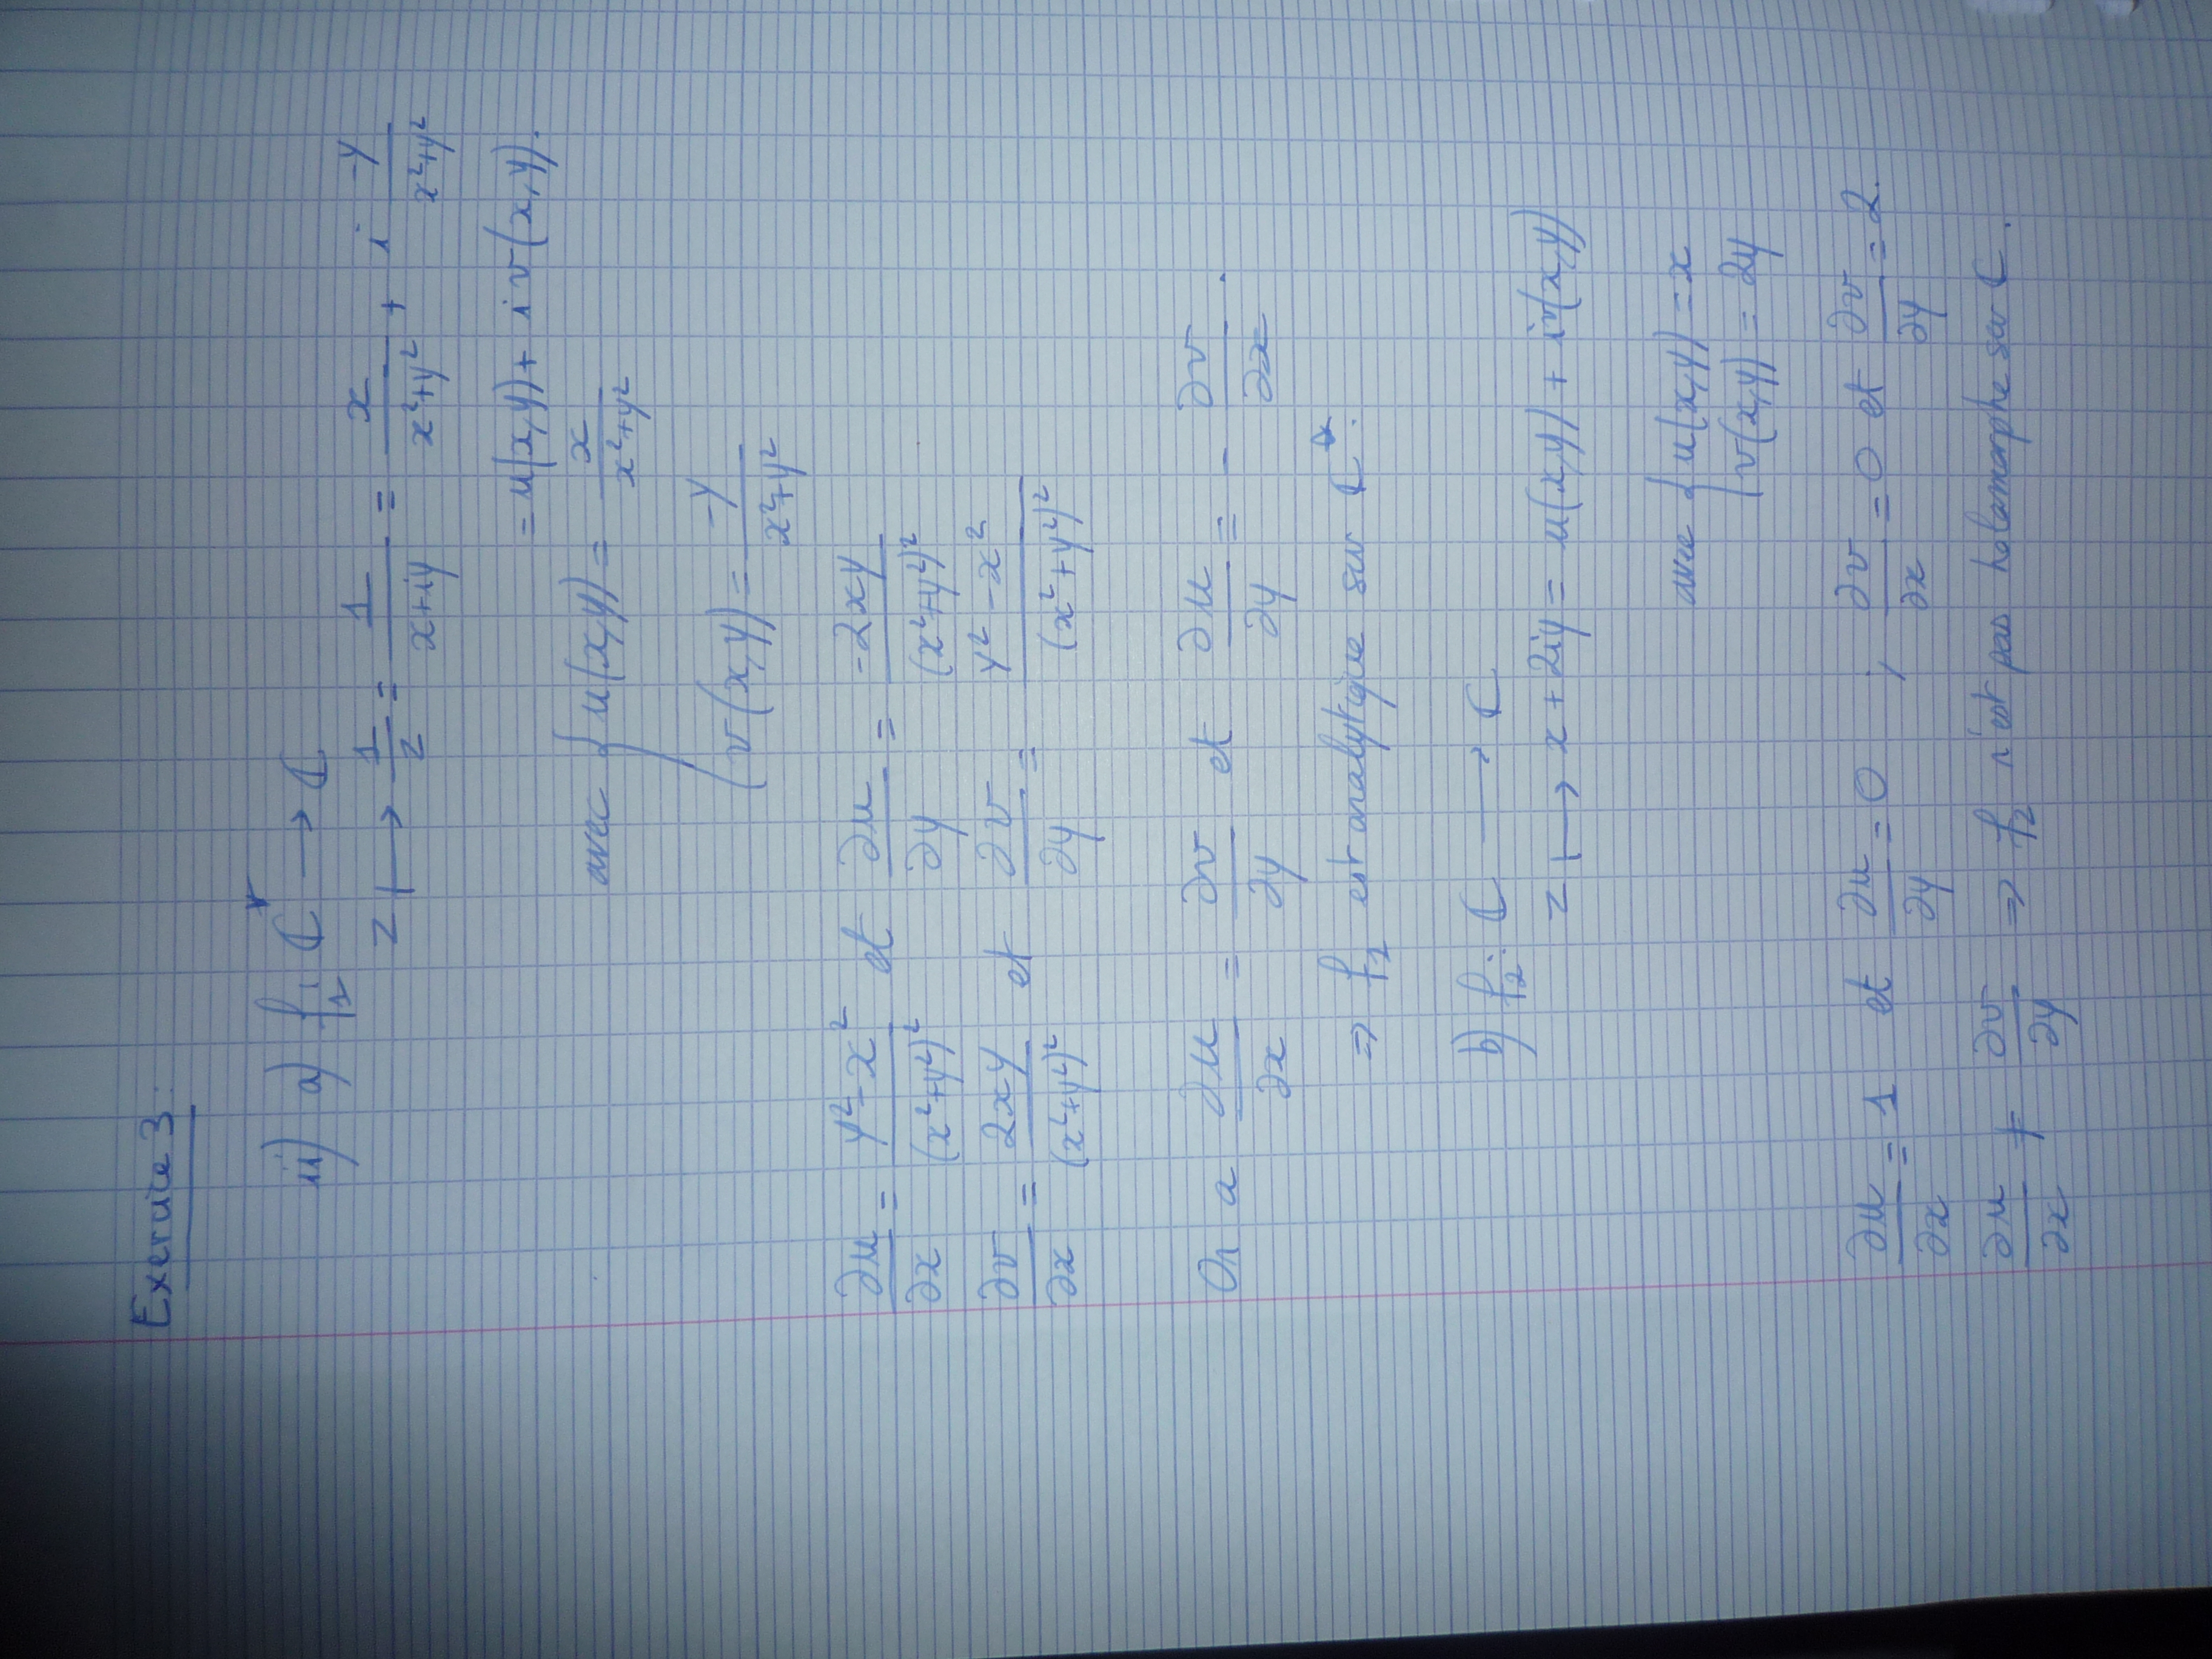 Exercice 3:
ii) a) f₁: ℂ* → ℂ
z ↦ 1/z = 1/(x+iy) = x/(x²+y²) + i -y/(x²+y²)
= u(x,y) + i v(x,y).
avec { u(x,y) = x/(x²+y²)
v(x,y) = -y/(x²+y²)
∂u/∂x = y²-x²/(x²+y²)² et ∂u/∂y = -2xy/(x²+y²)²
∂v/∂x = 2xy/(x²+y²)² et ∂v/∂y = y²-x²/(x²+y²)²
On a ∂u/∂x = ∂v/∂y et ∂u/∂y = - ∂v/∂x.
⇒ f₁ est analytique sur ℂ*.
b) f₂: ℂ → ℂ
z ↦ x+2iy = u(x,y) + iv(x,y)
avec { u(x,y) = x
v(x,y) = 2y
∂u/∂x = 1 et ∂u/∂y = 0 ; ∂v/∂x = 0 et ∂v/∂y = 2.
∂u/∂x ≠ ∂v/∂y ⇒ f₂ n'est pas holomorphe sur ℂ.